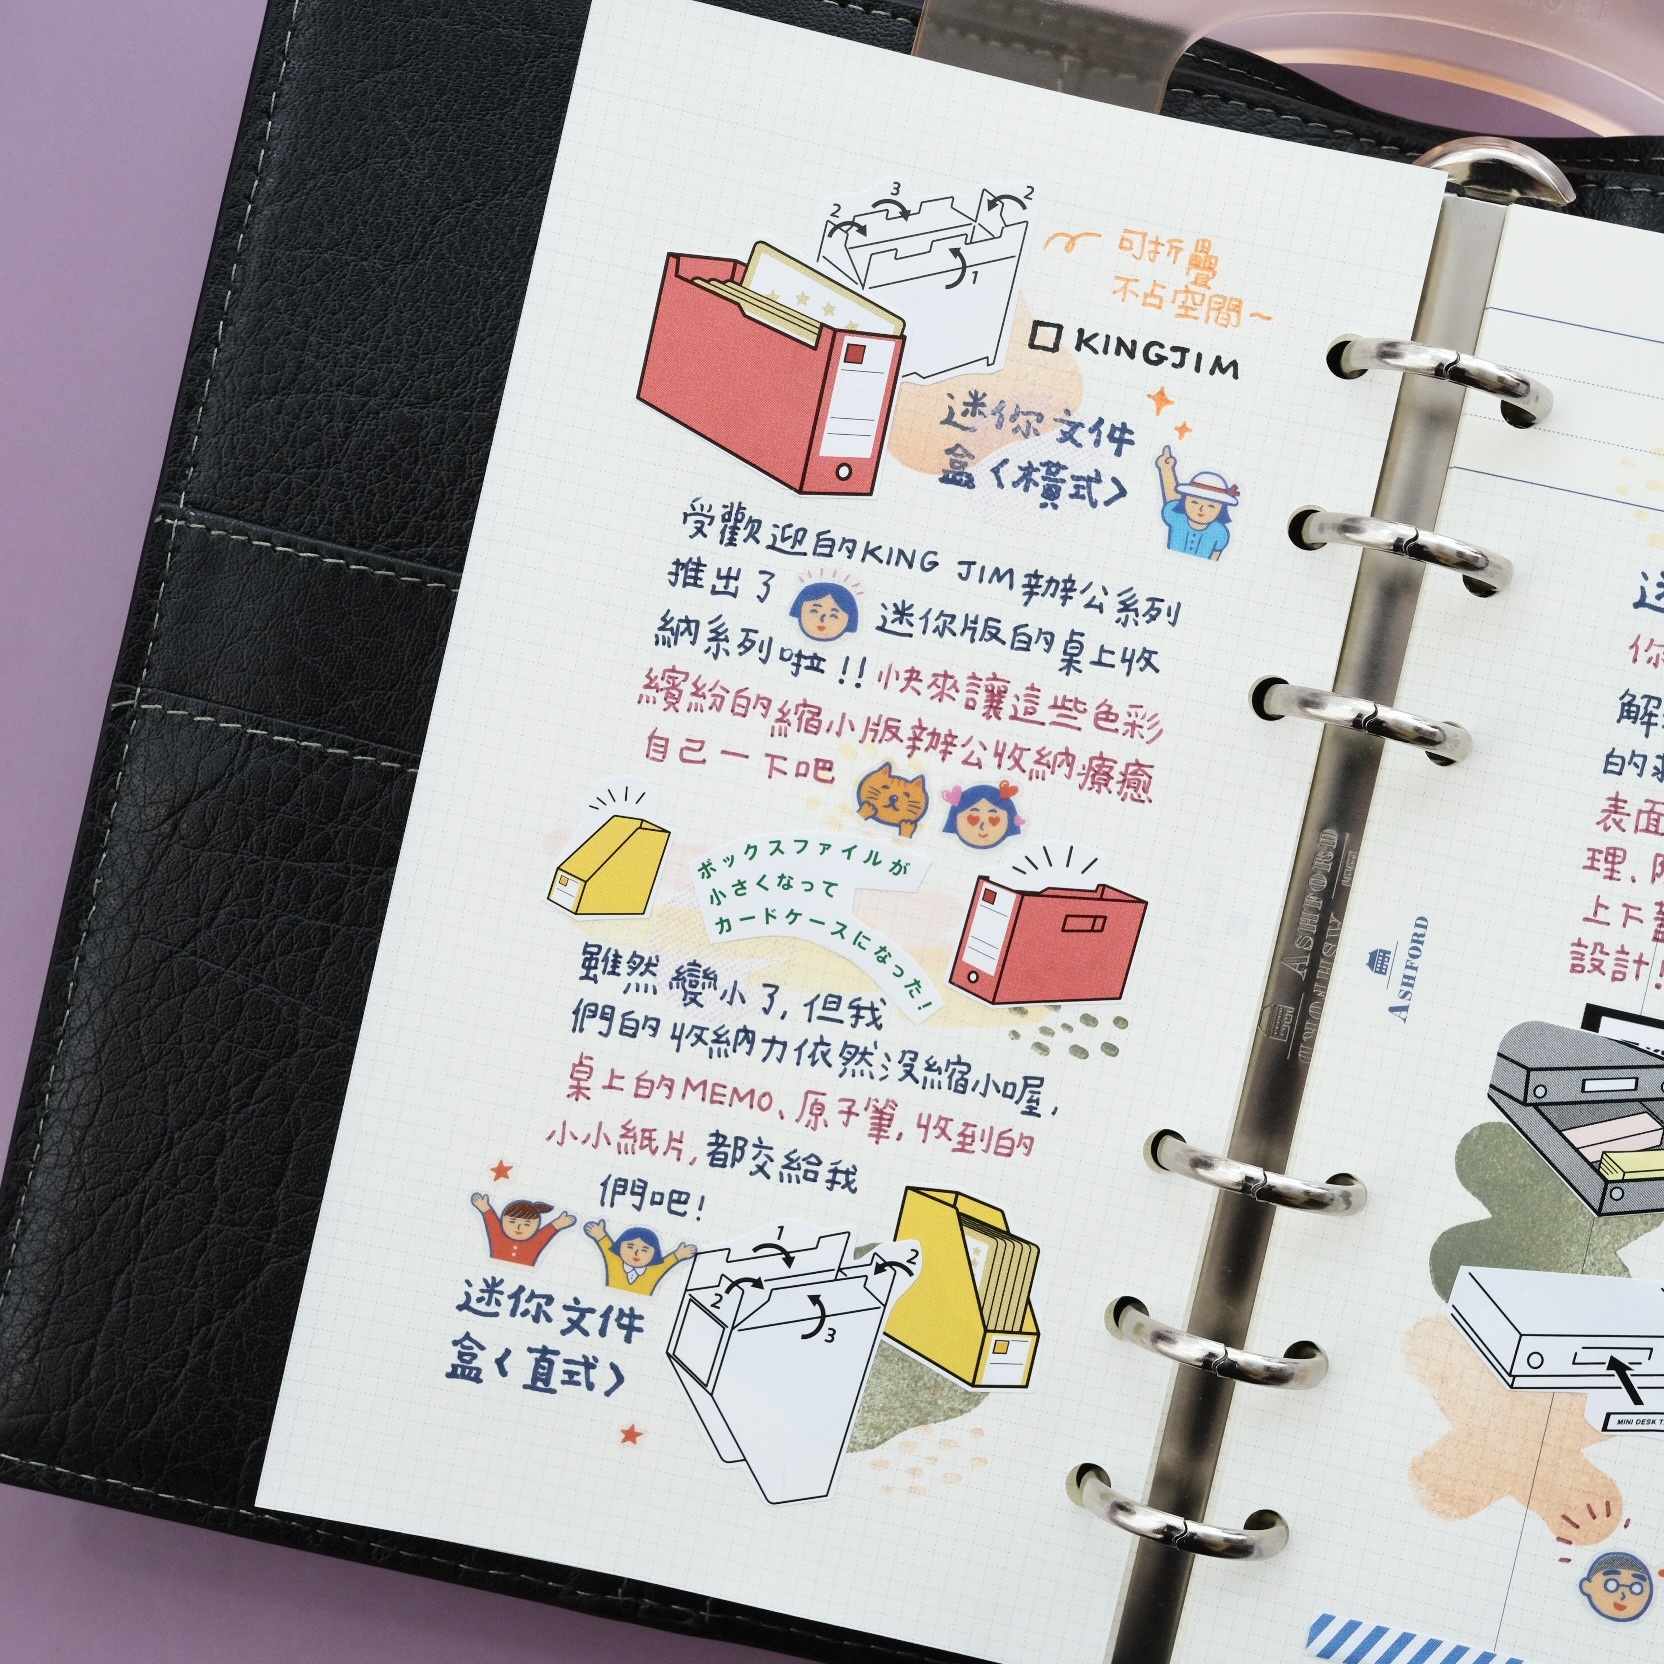 3
2
2
1
可折疊
不占空間~
KINGJIM
迷你文件
盒〈橫式〉
受歡迎的KING JIM辦公系列
推出了 迷你版的桌上收
納系列啦!!快來讓這些色彩
繽紛的縮小版辦公收納療癒
自己一下吧
ボックスファイルが
小さくなって
カードケースになった!
雖然變小了,但我
們的收納力依然沒縮小喔,
桌上的MEMO、原子筆,收到的
小小紙片,都交給我
們吧!
1
2
2
3
迷你文件
盒〈直式〉
ASHFORD
ASHFORD
ASHFORD
你
解
的
表面
理、
上下蓋
設計!
MINI DESK